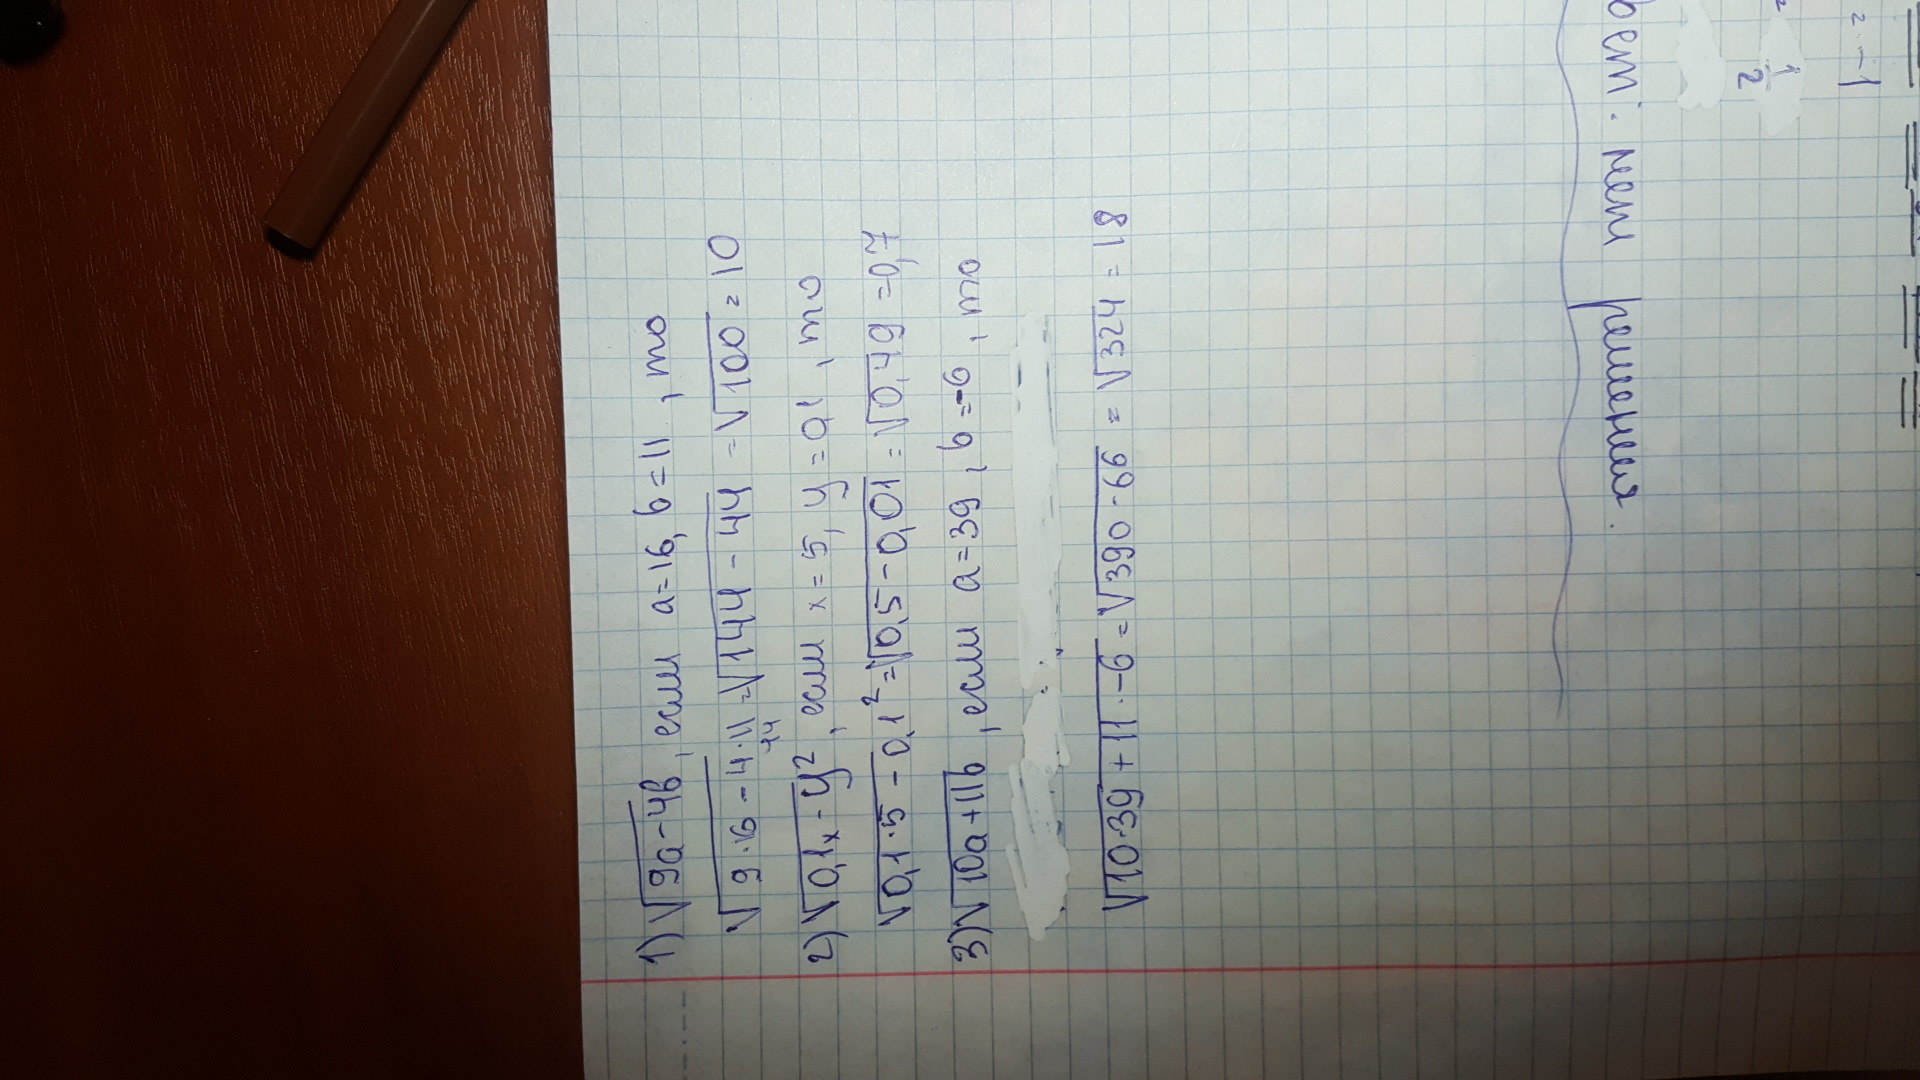 1) √9a-4b, если a=16, b=11, то
√9·16-4·11=√144-44=√100=10
44
2) √0,1x-y², если x=5, y=0,1, то
√0,1·5-0,1²=√0,5-0,01=√0,49=0,7
3) √10a+11b, если a=39, b=-6, то
√10·39+11·-6=√390-66=√324=18
вет: нет решения.
1
2
2·-1